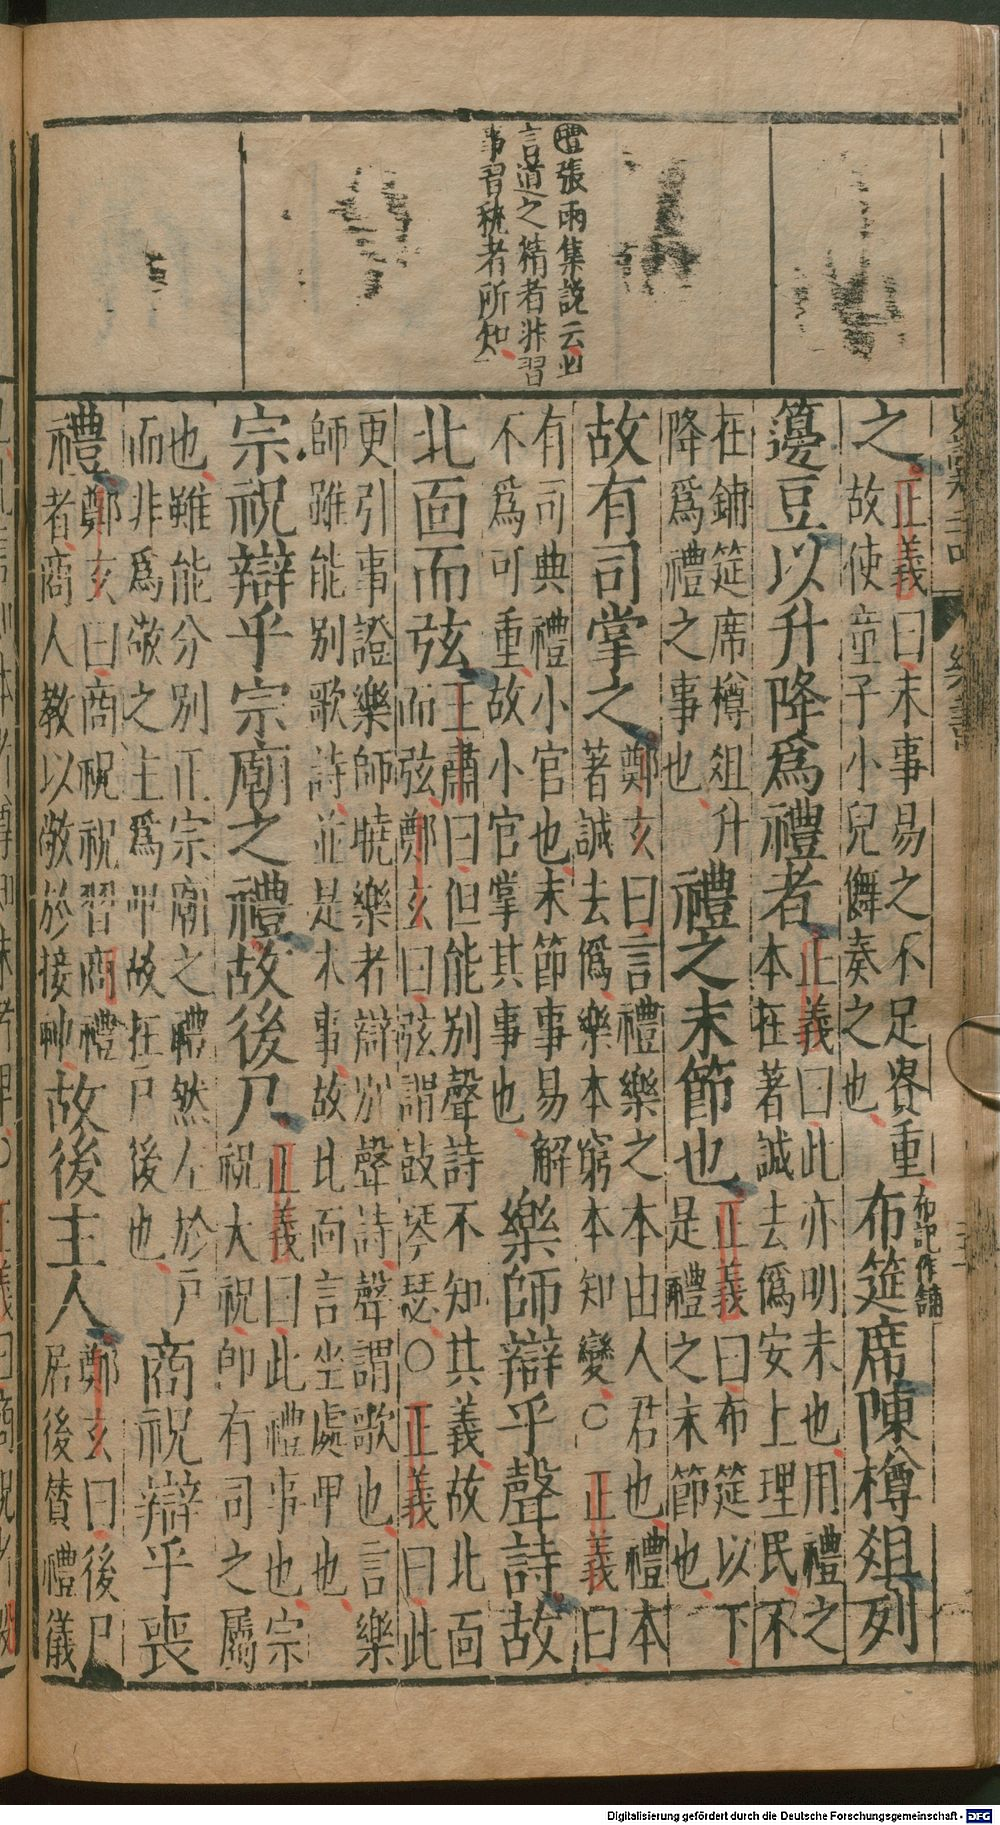 ㊣張雨集説云此
言道之精者非習
事習藝者所知
之正義曰末事易之不足貴重
故使童子小兒儛奏之也布記作鋪
布筵席陳樽俎列
籩豆以升降爲禮者正義曰此亦明末也用禮之
本在著誠去僞安上理民不
在鋪筵席樽俎升
降爲禮之事也禮之末節也正義曰布筵以下
是禮之末節也
故有司掌之鄭玄曰言禮樂之本由人君也禮本
著誠去僞樂本窮本知變○正義曰
有司典禮小官也末節事易解
不爲可重故小官掌其事也樂師辯乎聲詩故
北面而弦王肅曰但能別聲詩不知其義故北面
而弦鄭玄曰弦謂鼓琴瑟○正義曰此
更引事證樂師曉樂者辯別聲詩聲謂歌也言樂
師雖能別歌詩並是末事故此向言坐處卑也
宗祝辯乎宗廟之禮故後尸正義曰此禮事也宗
祝大祝卽有司之屬
也雖能分別正宗廟之禮然在於尸
而非爲敬之主爲卑故在尸後也商祝辯乎喪
禮鄭玄曰商祝祝習商禮
者商人教以敬於接神故後主人鄭玄曰後尸
居後贊禮儀
Digitalisierung gefördert durch die Deutsche Forschungsgemeinschaft - DFG